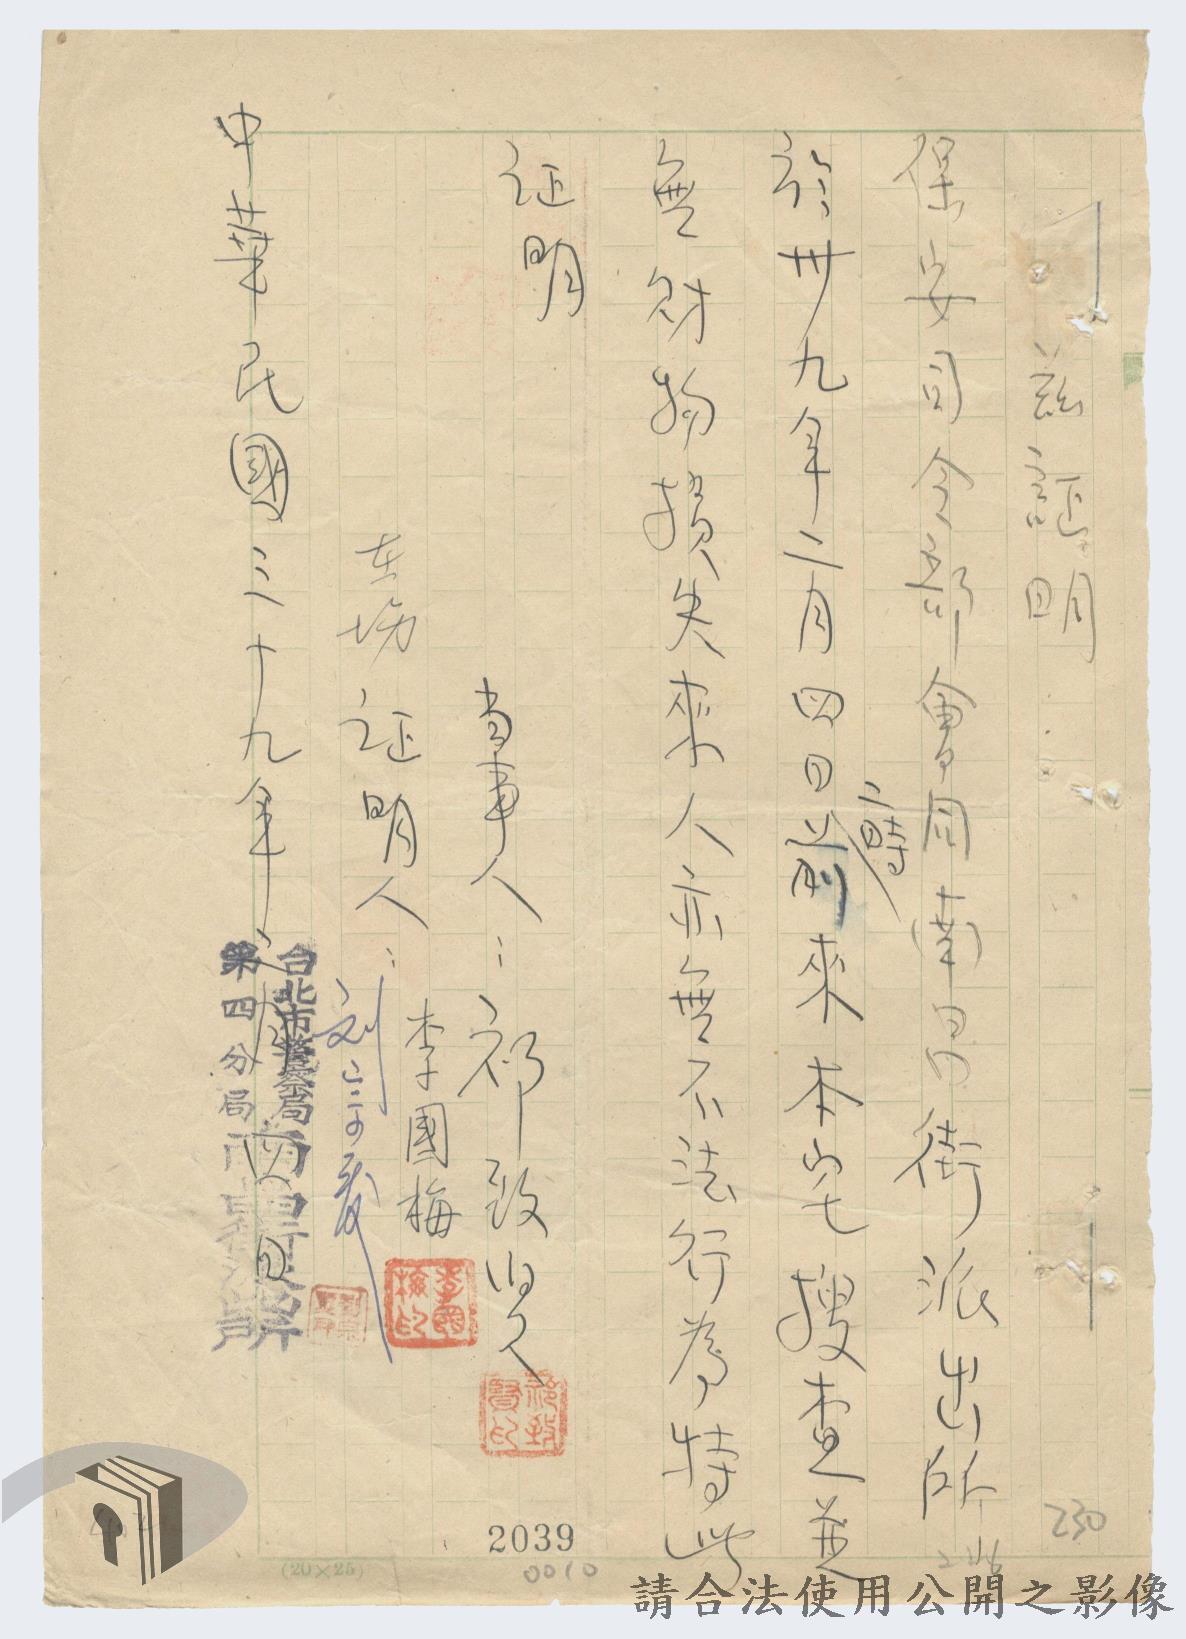 茲証明
保安司令部會同南昌街派出所
於卅九年二月四日二時前來本宅搜查並
無財物損失來人亦無不法行為特此
証明
当事人：祁致賢
李國梅
在場証明人：
中華民國三十九年二月四日
台北市警察局
第四分局
李國梅印
祁致賢印
2039
0010
230
(20×25)
請合法使用公開之影像